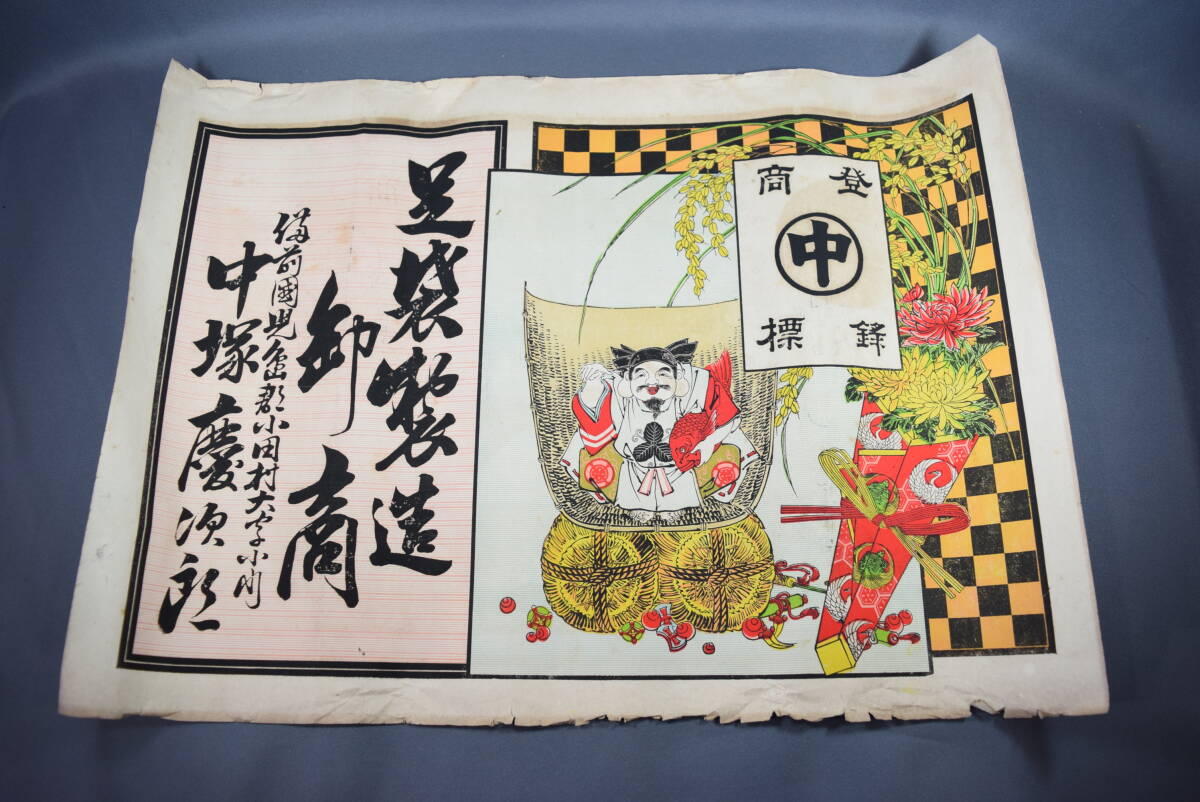 登録
商標
中
足袋製造
卸商
備前國児島郡小田村大字小川
中塚慶次郎